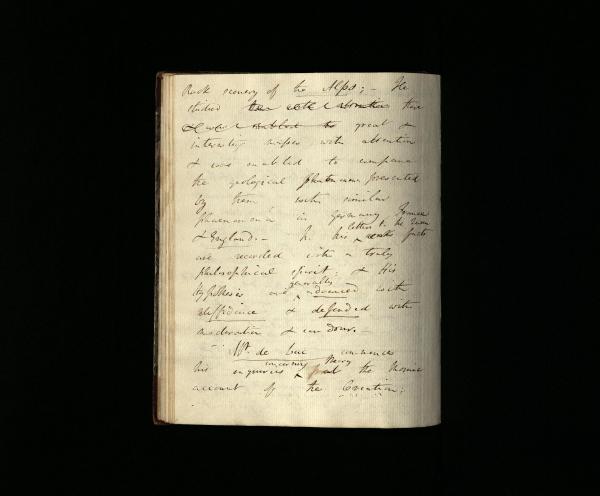 Rock scenery of the Alps; – He
studied there
great &
interesting masses with attention
& was enabled to compare
the geological phænomena presented
by them with similar
phaenomena in Germany France
& England. – In his letters to the Queen facts
are recorded with a truly
philosophical spirit; & His
Hypothesis are generally advanced with
diffidence & defended with
moderation & candour. –
– Mr. de Luc commences
his enquiries concerning the Mosaic
account of the Creation;